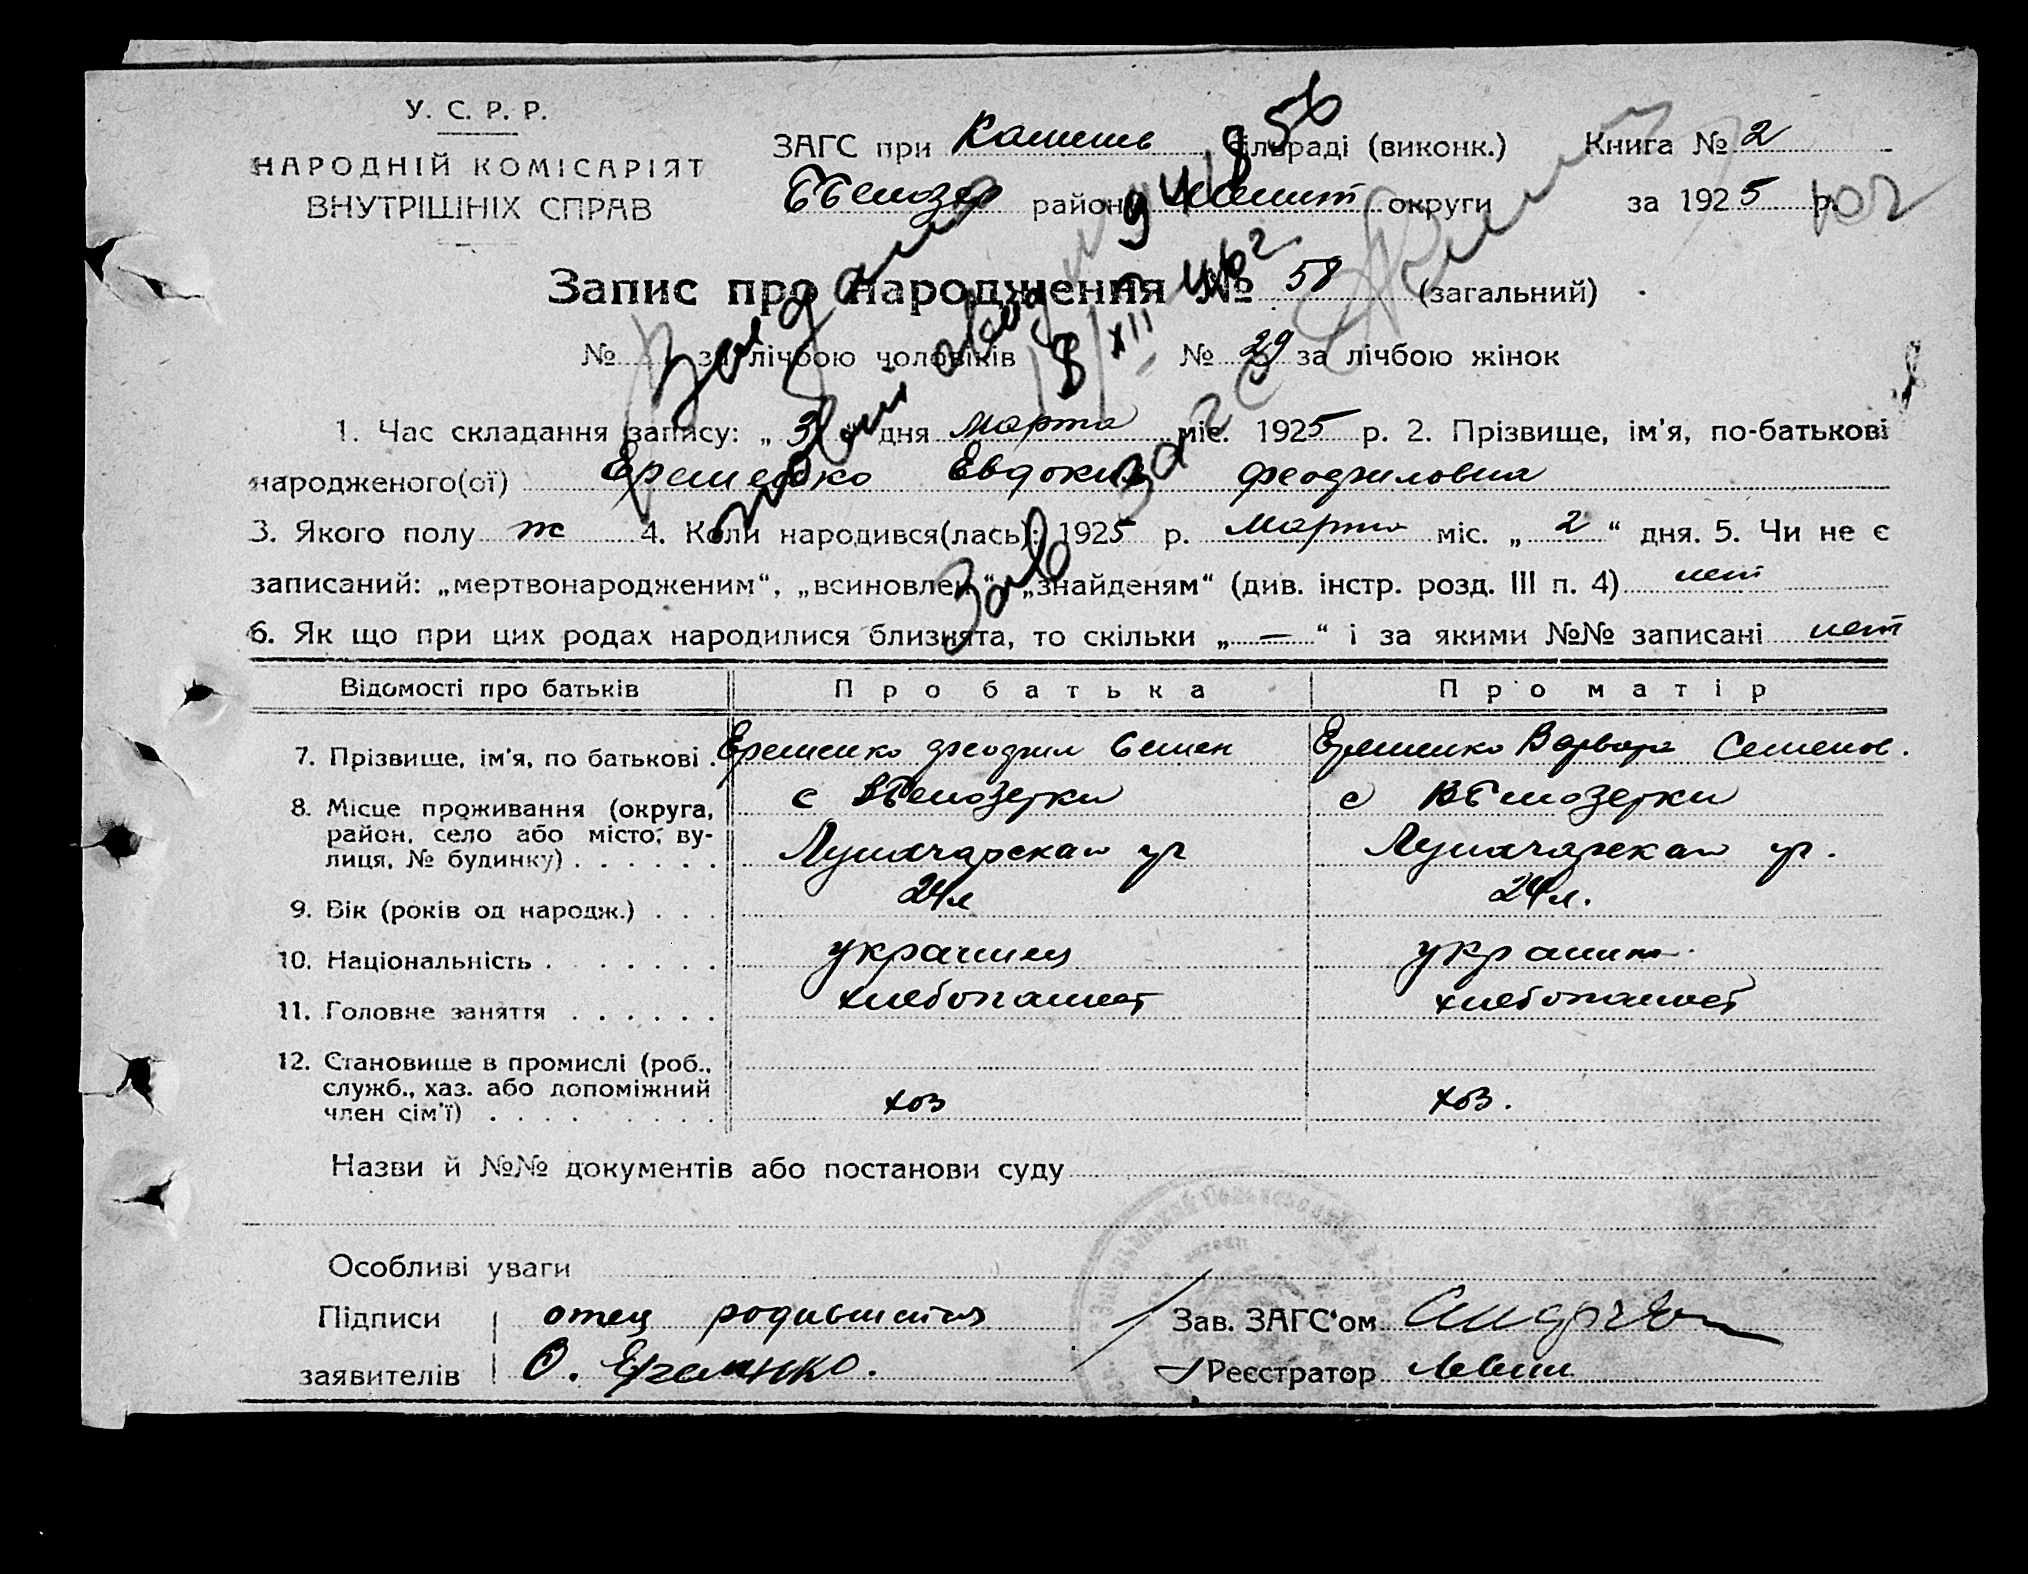 У. С. Р. Р.
НАРОДНІЙ КОМІСАРІЯТ
ВНУТРІШНІХ СПРАВ
ЗАГС при сільраді (виконк.) Книга № 2
району округи за 1925 р. 102
Запис про народження № 58 (загальний)
№ за лічбою чоловіків № 29 за лічбою жінок
Выдано
8/XII 46 г
Зав загс
1. Час складання запису: „3“ дня марта міс. 1925 р. 2. Прізвище, ім'я, по-батькові
народженого(ої) Ерешенко Евдокия Феофиловна
3. Якого полу ж 4. Коли народився(лась): 1925 р. марта міс. „2“ дня. 5. Чи не є
записаний: „мертвонародженим“, „всиновлен“, „знайденям“ (див. інстр. розд. III п. 4) нет
6. Як що при цих родах народилися близнята, то скільки „—“ і за якими №№ записані нет
Відомості про батьків Про батька Про матір
7. Прізвище, ім'я, по батькові . Ерешенко Феофил Семен Ерешенко Варвара Семенов.
8. Місце проживання (округа, с Бѣлозерки с Бѣлозерки
район, село або місто, ву-
лиця, № будинку) . . . . . . Луначарская ул Луначарская ул.
9. Вік (років од народж.) . . . 24 л 24 л.
10. Національність . . . . . . . украинец украин
11. Головне заняття . . . . . . хлебопашест хлебопашест
12. Становище в промислі (роб.,
служб., хаз. або допоміжний
член сім'ї) . . . . . . . . хоз хоз.
Назви й №№ документів або постанови суду
Особливі уваги
Підписи отец родившейся Зав. ЗАГС'ом
заявителів Ф. Ерешенко. Реєстратор Левин